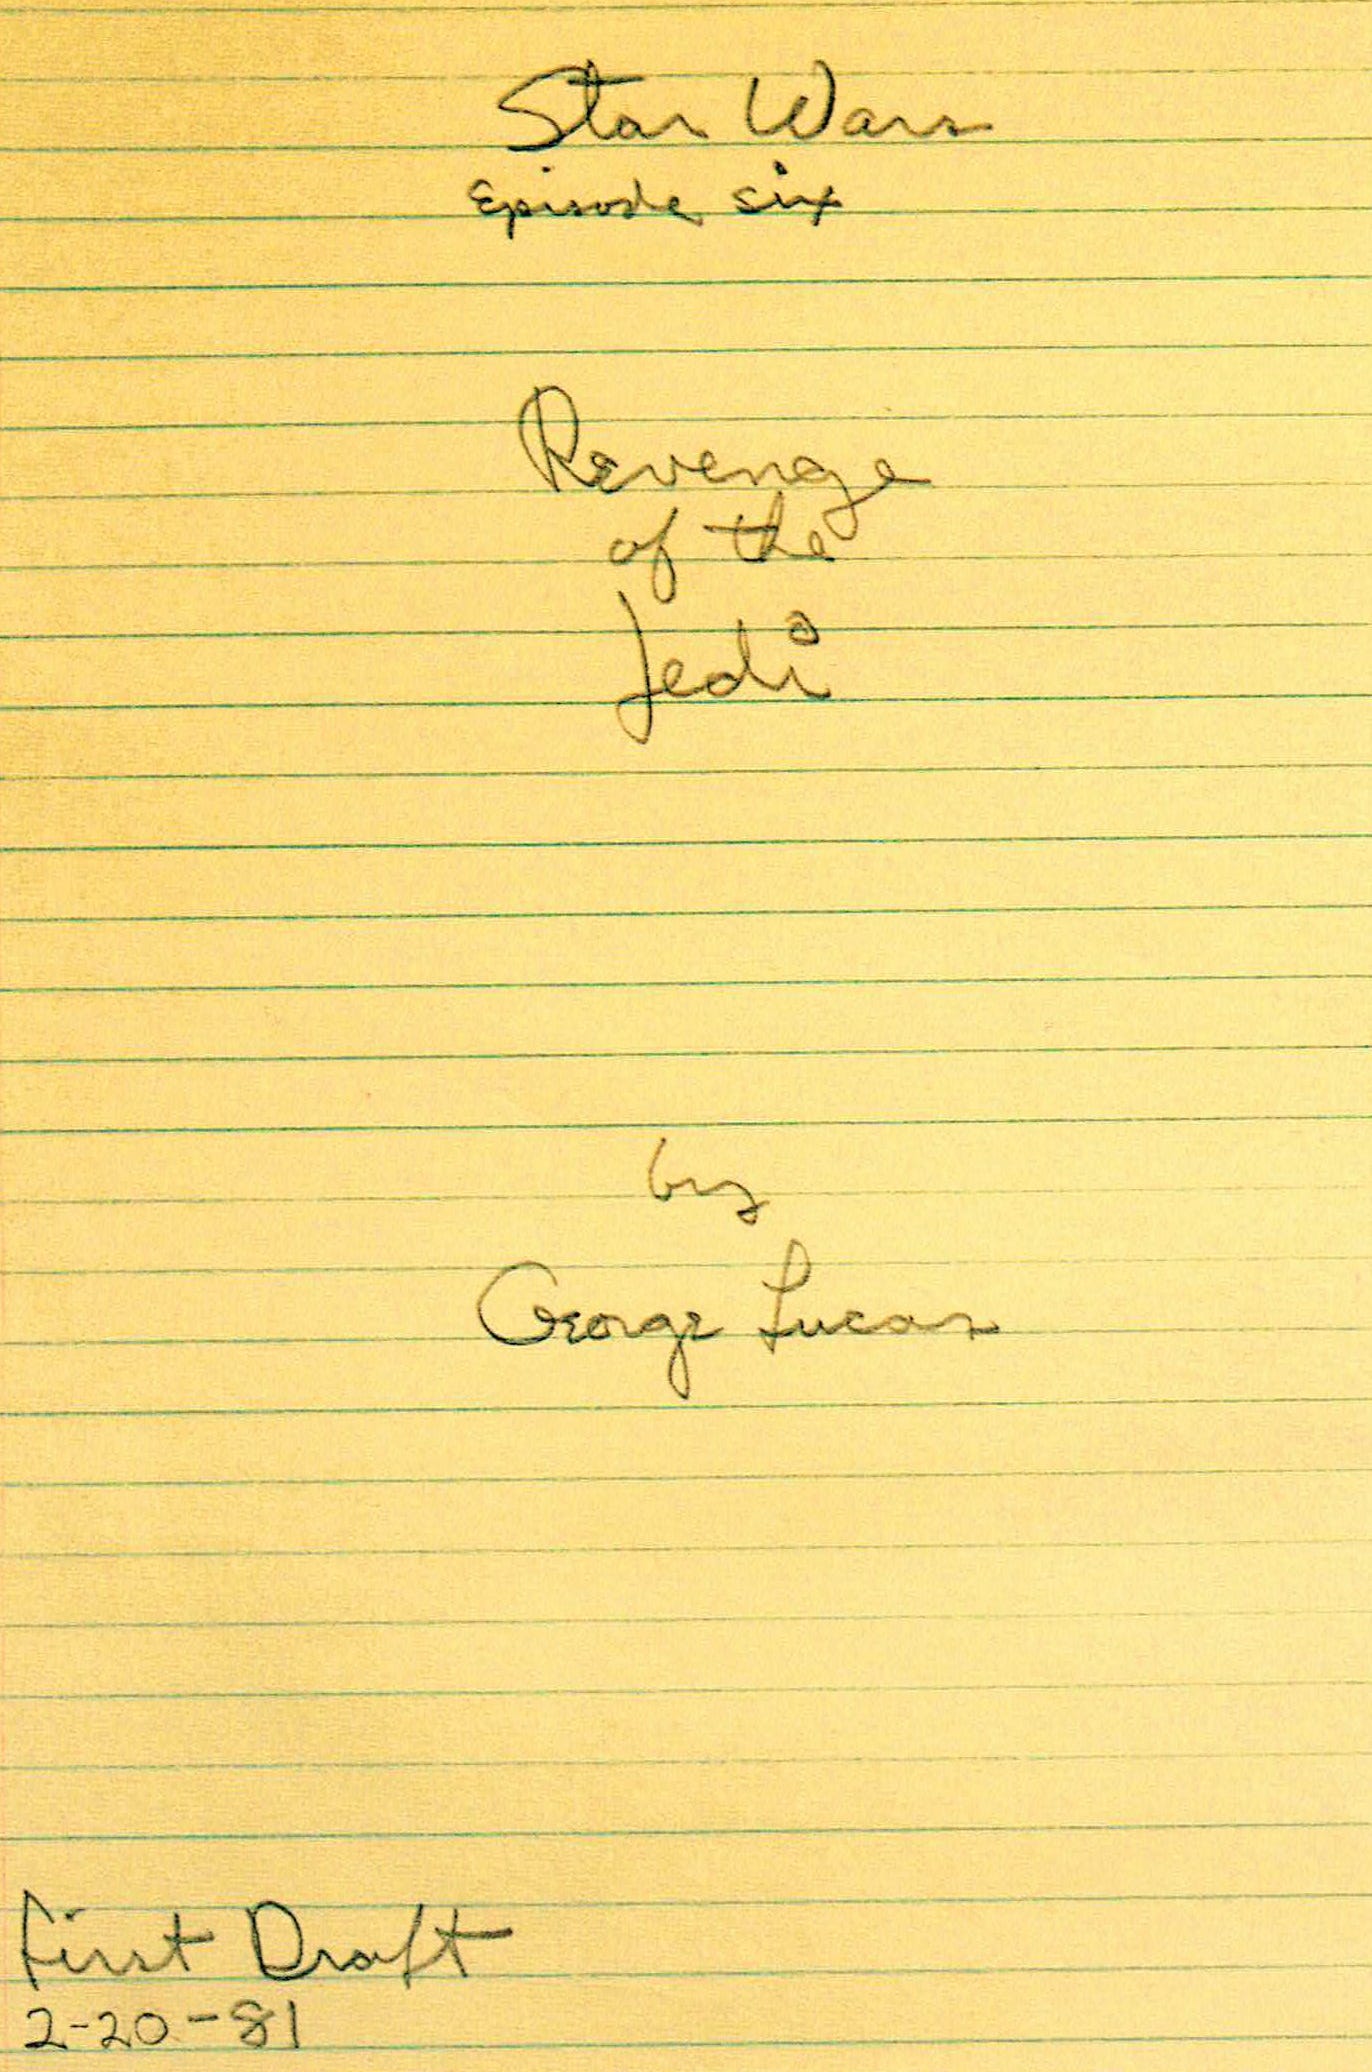 Star Wars
Episode six
Revenge
of the
Jedi
by
George Lucas
First Draft
2-20-81